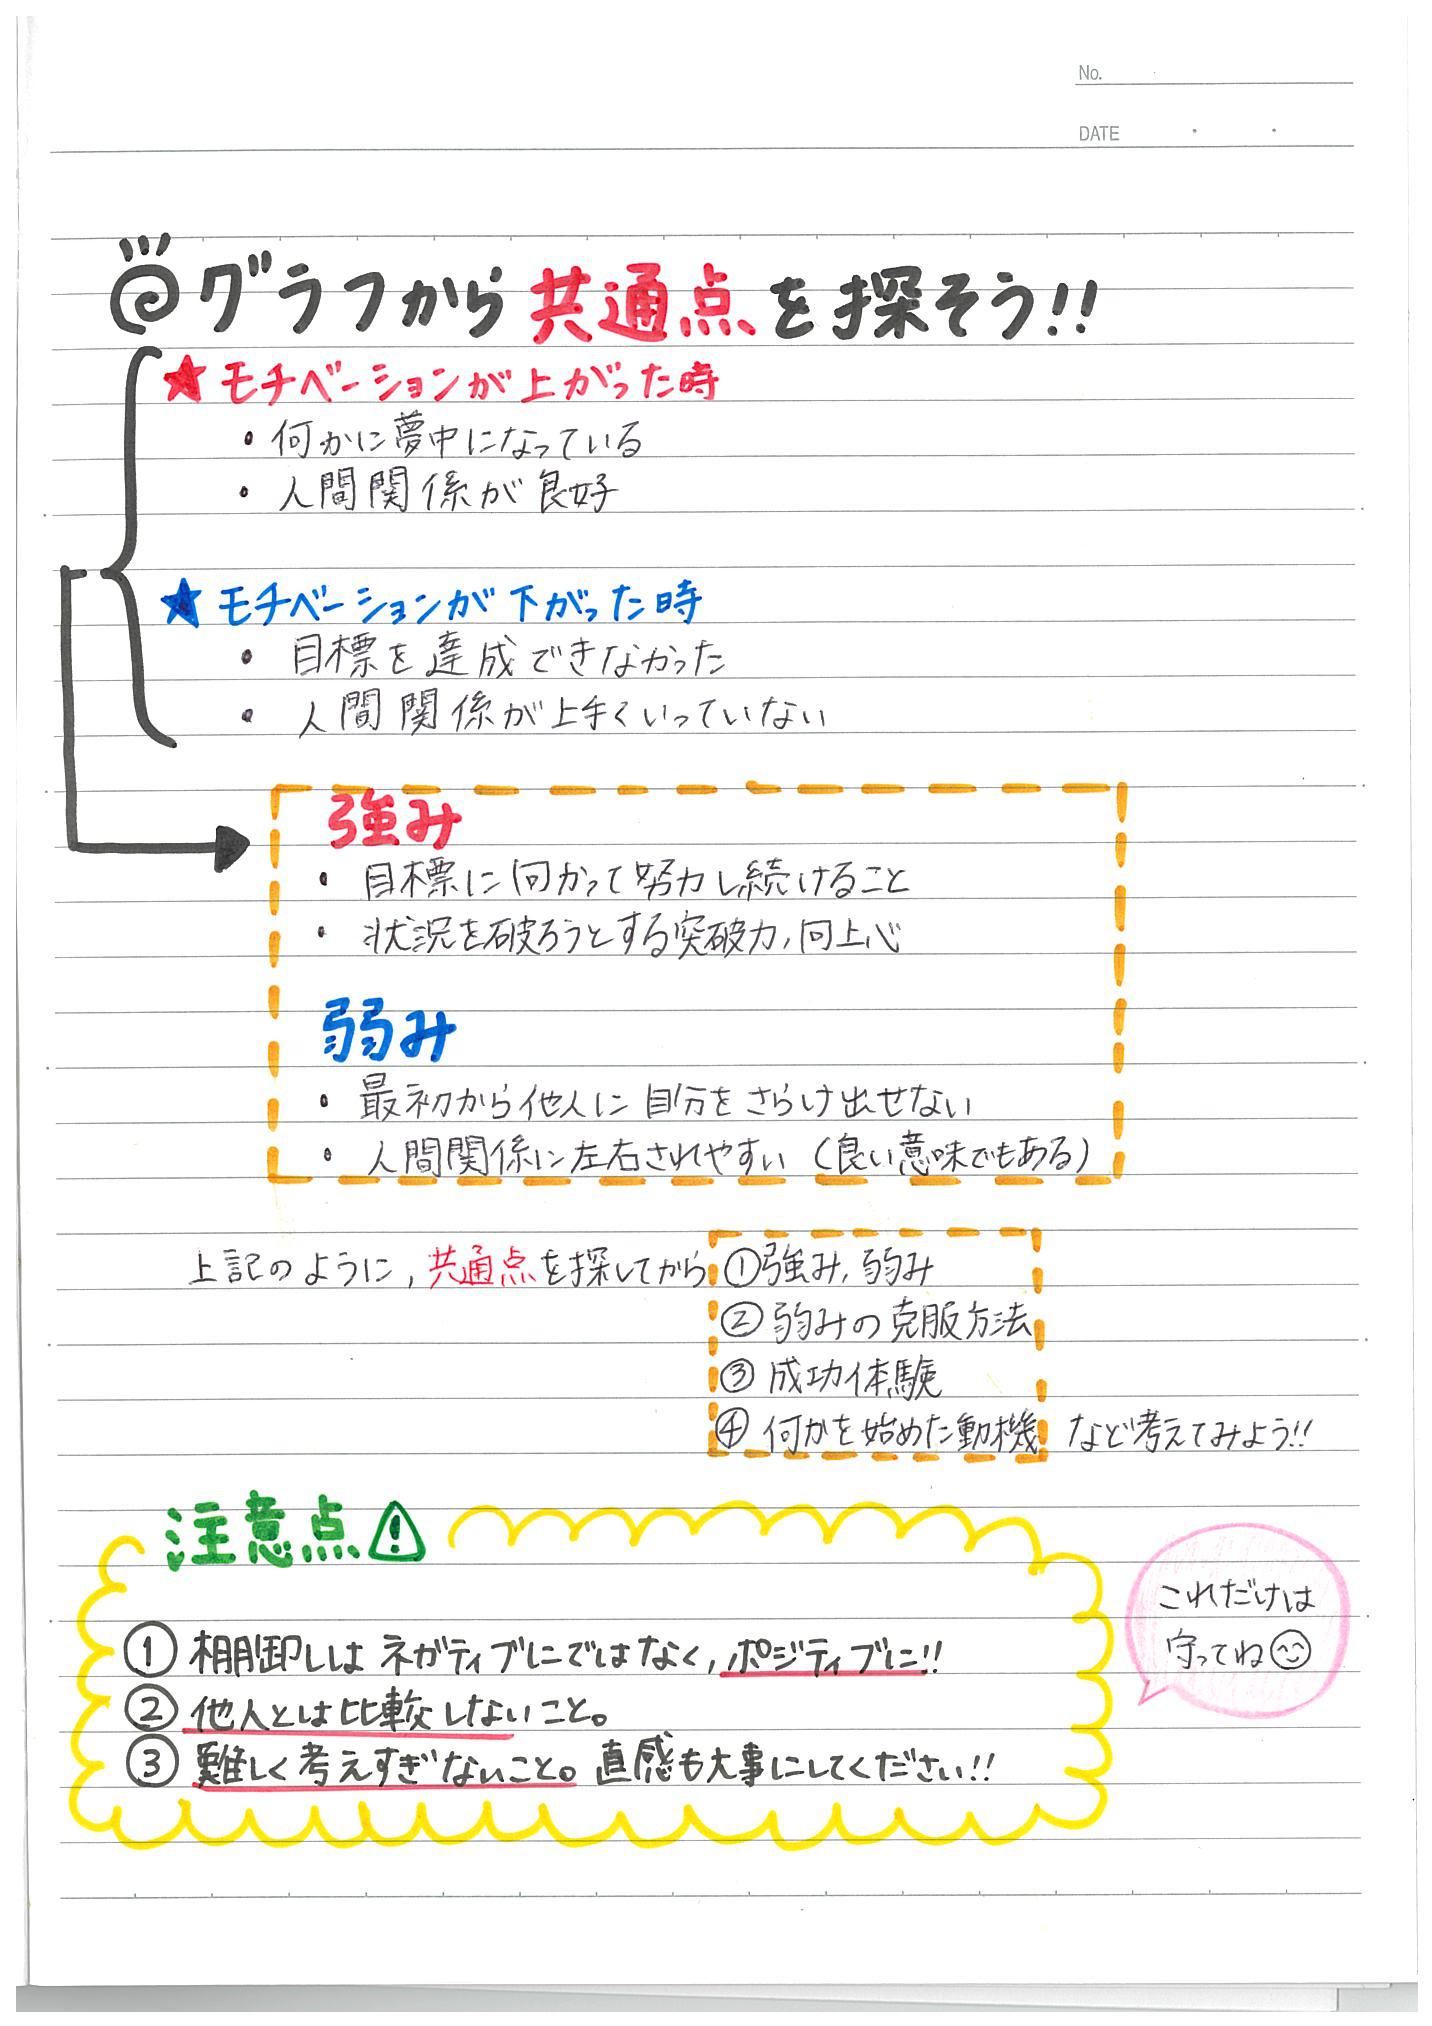 No.
DATE
グラフから共通点を探そう!!
★モチベーションが上がった時
・何かに夢中になっている
・人間関係が良好
★モチベーションが下がった時
・目標を達成できなかった
・人間関係が上手くいっていない
強み
・目標に向かって努力し続けること
・状況を破ろうとする突破力,向上心
弱み
・最初から他人に自分をさらけ出せない
・人間関係に左右されやすい(良い意味でもある)
上記のように,共通点を探してから①強み,弱み
②弱みの克服方法
③成功体験
④何かを始めた動機 など考えてみよう!!
注意点
①棚卸しはネガティブにではなく,ポジティブに!!
②他人とは比較しないこと。
③難しく考えすぎないこと。直感も大事にしてください!!
これだけは
守ってね